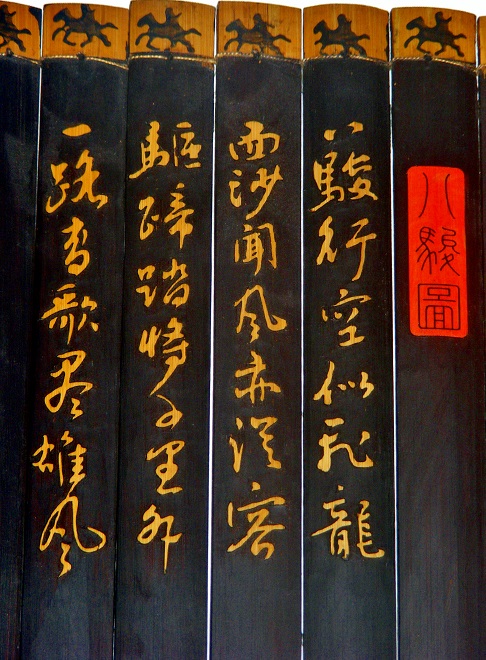 八駿圖
八駿行空似飛龍
西沙聞風亦從容
驅蹄踏千里外
一路高歌尽雄風